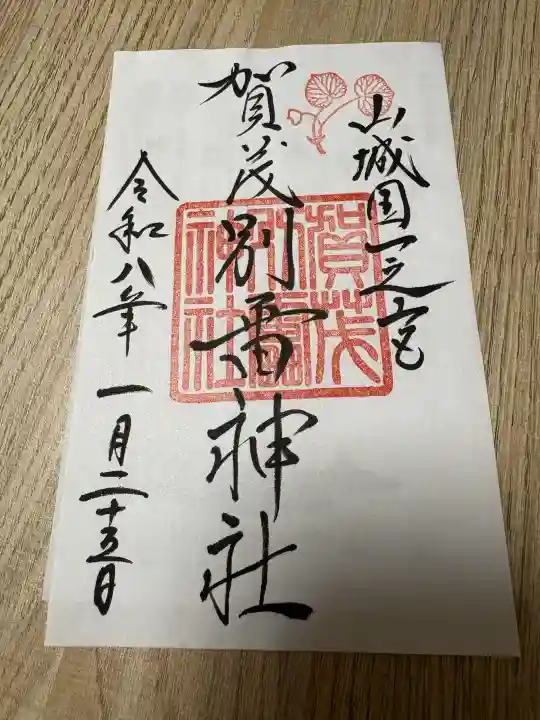 山城国一之宮
賀茂別雷神社
賀茂別雷神社
令和八年一月二十五日